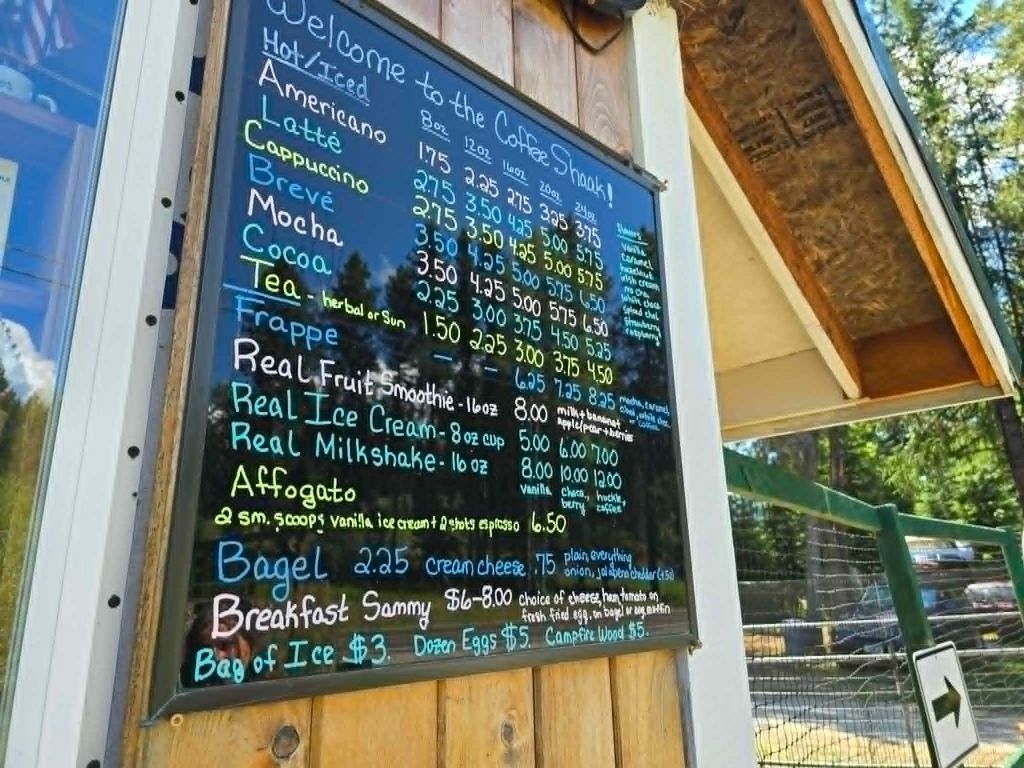 Welcome to the Coffee Shaak!
Hot/Iced 8oz 12oz 16oz 20oz 24oz
Americano 1.75 2.25 2.75 3.25 3.75
Latté 2.75 3.50 4.25 5.00 5.75
Cappuccino 2.75 3.50 4.25 5.00 5.75
Brevé 3.50 4.25 5.00 5.75 6.50
Mocha 3.50 4.25 5.00 5.75 6.50
Cocoa 2.25 3.00 3.75 4.50 5.25
Tea - herbal or Sun 1.50 2.25 3.00 3.75 4.50
flavors
vanilla
caramel
hazelnut
irish cream
white choco
strawberry
raspberry
Frappe — — 6.25 7.25 8.25 mocha, caramel,
chai, white choc.
or coffee
Real Fruit Smoothie - 16oz 8.00 milk + banana +
apple/pear + berries
Real Ice Cream - 8oz cup 5.00 6.00 7.00
Real Milkshake - 16oz 8.00 10.00 12.00
vanilla choco, huckle,
berry coffee
Affogato
2 sm. scoops vanilla ice cream + 2 shots espresso 6.50
Bagel 2.25 cream cheese .75 plain, everything
onion, jalapeno cheddar (+.50)
Breakfast Sammy $6-8.00 choice of cheese, ham, tomato on
fresh fried egg, on bagel or eng. muffin
Bag of Ice $3. Dozen Eggs $5. Campfire Wood $5.